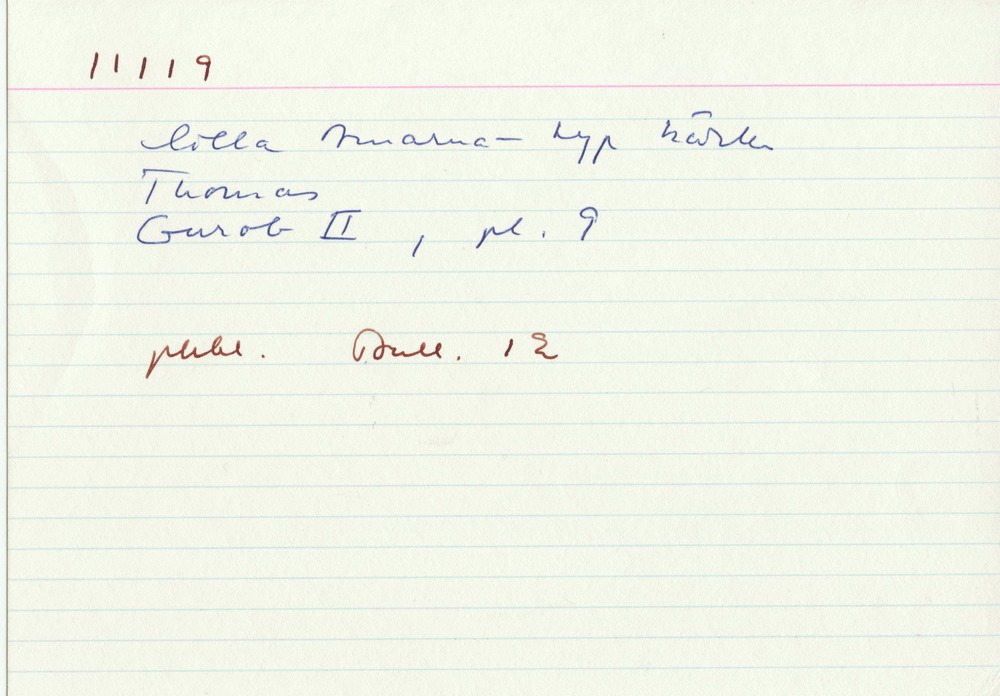 11119
lilla Amarna-typ kärlen
Thomas
Gurob II, pl. 9
publ. Bull. 12